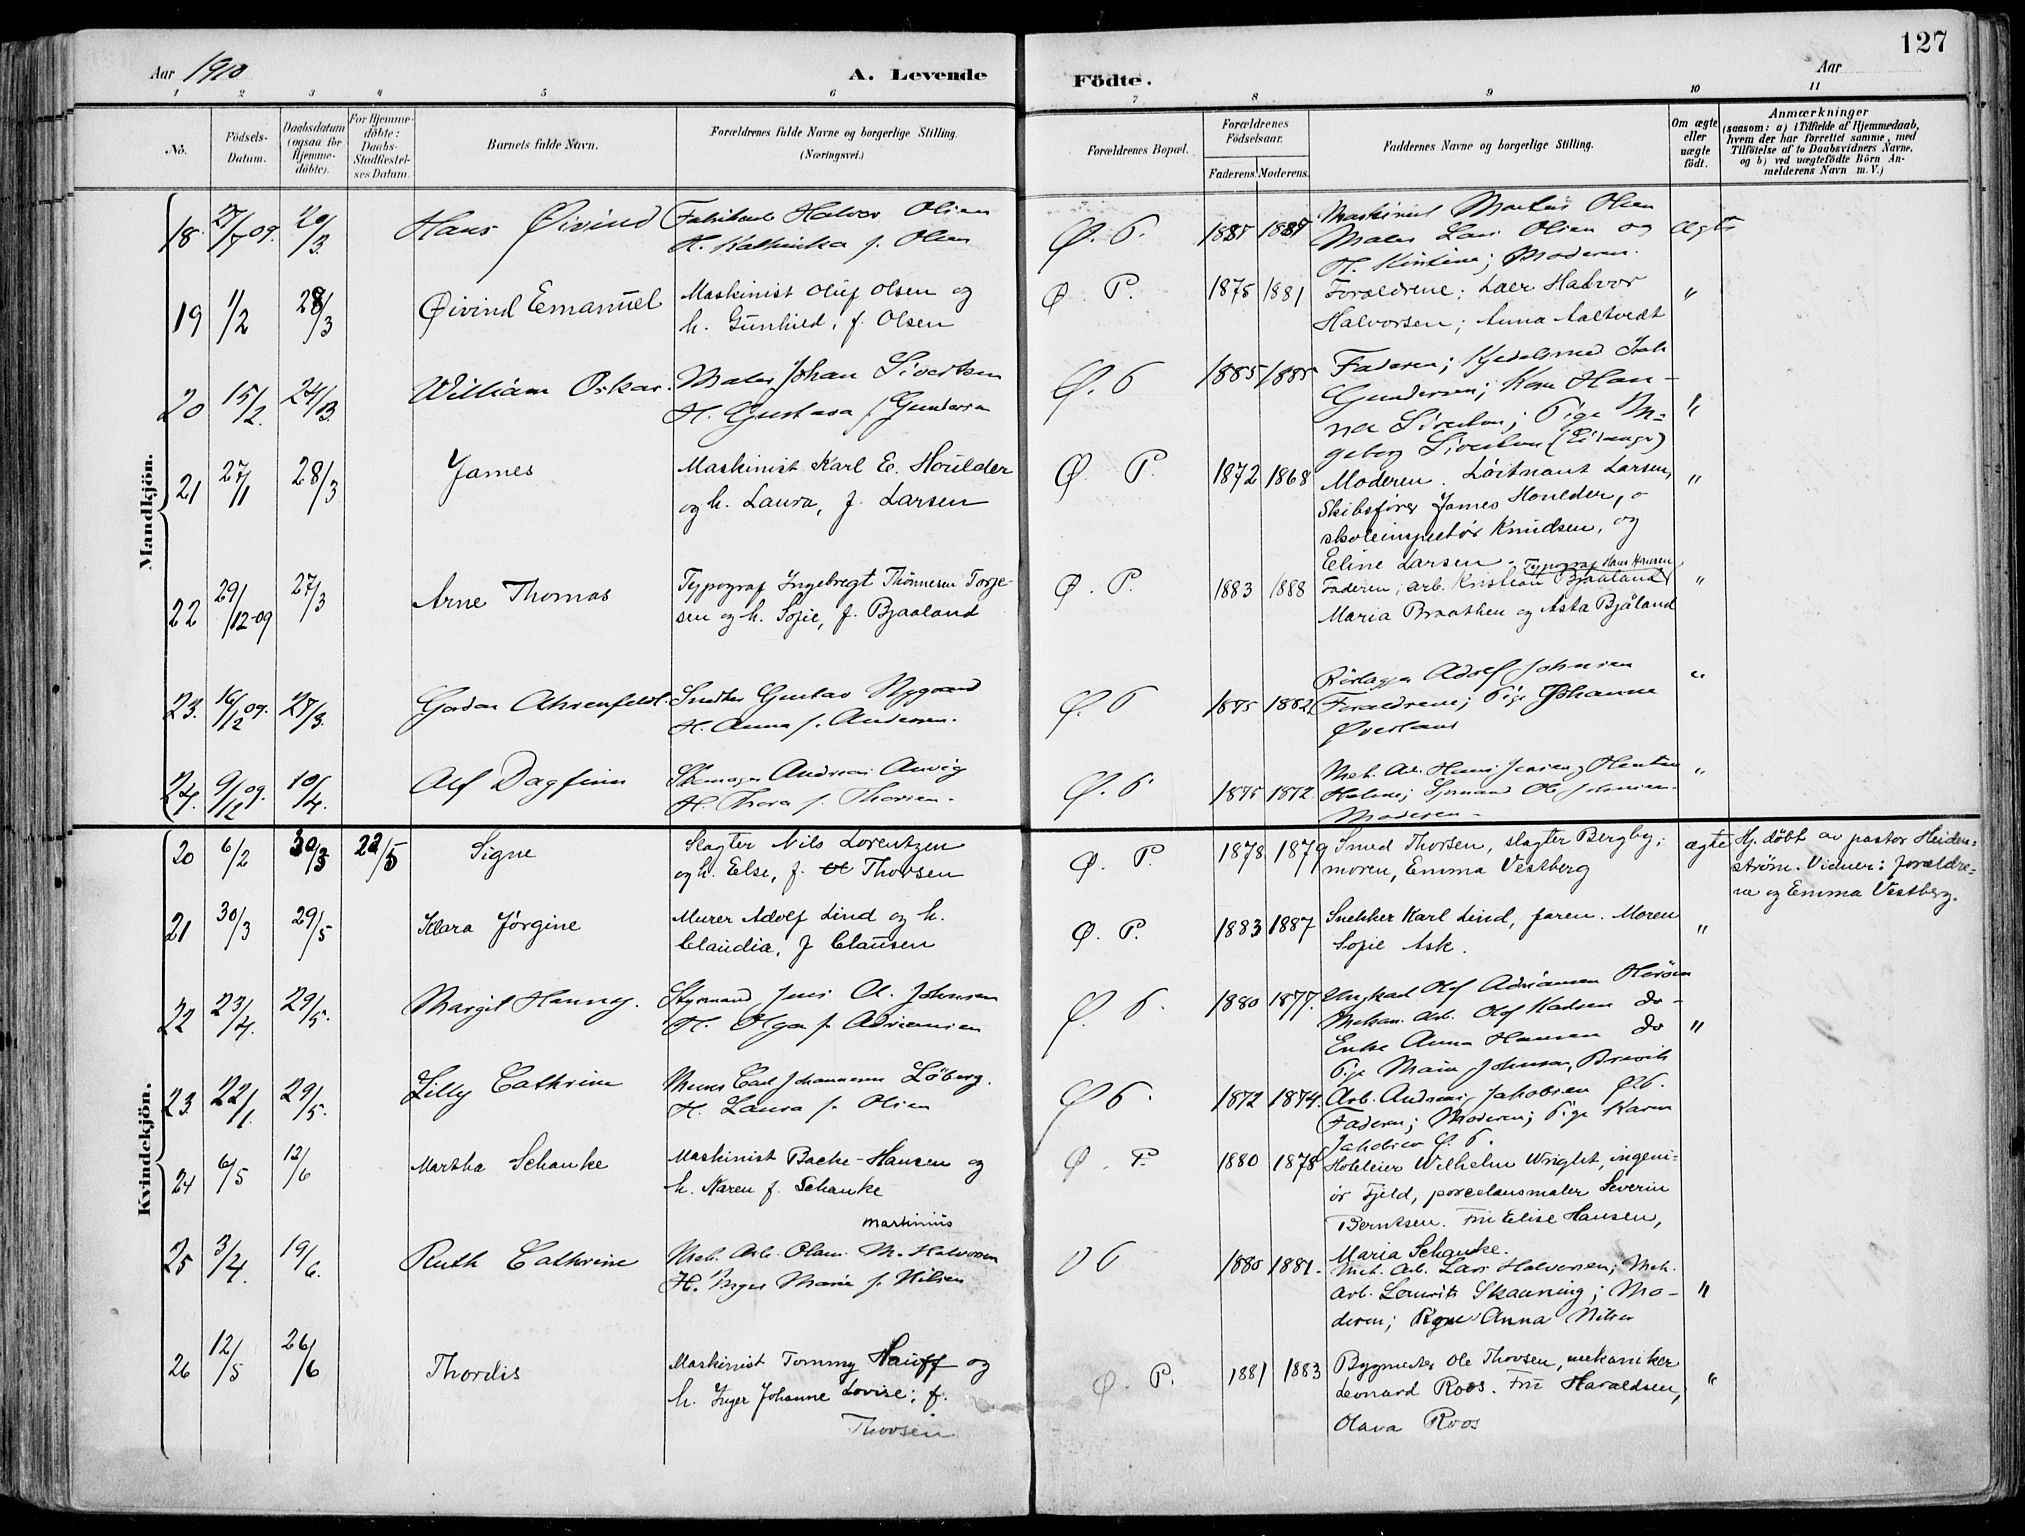 127
Aar 1910
A. Levende
Födte.
Aar
1 2 3 4 5 6 7 8 9 10 11
No.
Födsels-Datum.
Daabsdatum (ogsaa for Hjemme-döbte).
For Hjemme-döbte: Daabs-Stadfæstel-ses Datum.
Barnets fulde Navn.
Forældrenes fulde Navne og borgerlige Stilling. (Næringsvei.)
Forældrenes Bopæl.
Forældrenes Födselsaar.
Faderens. Moderens.
Faddernes Navne og borgerlige Stilling.
Om ægte eller uægte födt.
Anmærkninger
(saasom: a) i Tilfælde af Hjemmedaab,
hvem der har forrettet samme, med
Tilföielse af to Daabsvidners Navne.
og b) ved uægtefödte Börn An-
melderens Navn m. V.)
Mandkjön.
18. 27/7 09. 20/3. Hans Øivind
Fabrikarb Halvor Olsen
H. Kathinka f. Olsen
Ø. P. 1885 1889
Maskinist Olsen
Maler Olsen og
H. Kirstine; Moderen.
ægte
19 1/2 28/3 Øivind Emanuel
Maskinist Oluf Olsen og
h. Gunhild, f. Olsen
Ø. P. 1875 1881
Forældrene; Laer Halvor
Halvorsen; Anna Aaltvedt
"
20 15/2. 24/3. William Oskar.
Maler Johan Sivertsen
H. Gustava f. Gundersen
Ø. P 1885 1885
Faderen; Isak
Gundersen; Kone Han-
na Sivertsen; Pige In-
geborg Sivertsen (Eidanger)
"
21 27/1 28/3 James
Maskinist Karl E. Houlder
og h. Laura, f. Larsen
Ø P. 1872 1868
Moderen. Løitnant Larsen,
Skibsfører James Houlder,
skoleinspektör Knudsen, og
Eline Larsen
"
22 29/12-09 27/3 Arne Thomas
Typograf Ingebregt Thönnesen Torje-
sen og h. Sofie, f. Bjaaland
Ø. P. 1883 1888
Typograf Hans Hansen
Faderen, arb. Kristian Bjaaland
Maria Braathen og Asta Bjåland
"
23. 16/12 09. 27/3. Gordon Ahrenfeldt.
Gustav Nygaard
H. Anna f. Andersen.
Ø. P 1875 1882
Rörlægger Adolf Johnsen
Forældrene; Pige Johanne
Øverland
"
24. 9/12 09. 10/4. Alf Dagfinn
Skomager Andreas Auvig
H. Thora f. Thorsen.
Ø. P 1875 1872.
Mek. Arb. Hans Jensen,
Moderen.
"
Kvindekjön.
20 6/2 30/3 22/5 Signe
Slagter Nils Lorentzen
og h. Else, f. Thorsen
Ø. P. 1878 1879
Smed Thorsen, slagter Bergby;
moren, Emma Vestberg
ægte
Hj. döbt av pastor Heiden-
ström. Vidner: foreldre-
ne og Emma Vestberg.
21 30/3 29/5 Klara Jörgine
Murer Adolf Lind og h.
Claudia, f Clausen
Ø. P. 1883 1887
Snekker Karl Lind, faren. Moren
Sofie Ask.
"
22 23/4. 29/5. Margit Hanney.
Styrmand Jens A. Johnsen
H. Olga f. Adriansen
Ø. P. 1880 1877.
Ungkarl Olaf Adriansen Herøen
Mekan. Arb. Olaf Karlsen do-
Enke Anna Hansen do
Pige Marie Johnsen, Brevik
"
23. 22/1. 29/5. Lilly Cathrine
Murer Carl Johannesen Löberg.
H. Laura f. Olsen
Ø P. 1872 1874.
Arb. Andreas Jakobsen Ø.P.
Faderen; Moderen; Pige Karen
Jakobsen Ø. P.
24 6/5 12/6 Martha Schanke
Maskinist Backe-Hansen og
h. Karen f. Schanke
Ø. P. 1880 1878
Hoteleier Wilhelm Wright, ingeni-
ör Fjeld, porcelansmaler Severin
Berntsen. Fru Elise Hansen,
Maria Schanke.
25 3/4. 19/6. Ruth Cathrine
Martinius
Mek. Arb. Olaus M. Halvorsen
H. Inger Marie f. Nilsen
Ø P 1880 1881.
Mek. Arb. Lars Halvorsen; Mek.
Arb. Lauritz Skauning; Mo-
deren; Pige Anna Nilsen
"
26 12/5 26/6 Thordis
Maskinist Tommy Hauff og
h. Inger Johanne Lovise; f.
Thovsen
Ø. P. 1881 1883
Bygmester Ole Thovsen, mekaniker
Leonard Roos. Fru Haraldsen,
Olava Roos
"